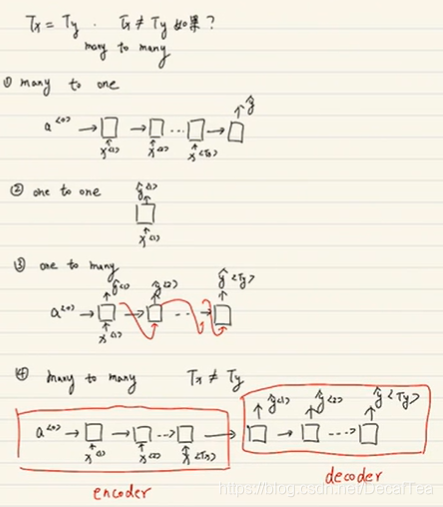 Tx = Ty . Tx ≠ Ty 如果？
many to many
① many to one
ŷ
a<0> → → ... →
x<1> x<2> x<Tx>
② one to one
ŷ<1>
x<1>
③ one to many
ŷ<1> ŷ<2> ŷ<Ty>
a<0> → → ...
x<1>
④ many to many Tx ≠ Ty
ŷ<1> ŷ<2> ŷ<Ty>
a<0> → → ---> → → --->
x<1> x<2> x<Tx>
encoder decoder
https://blog.csdn.net/DecafTea